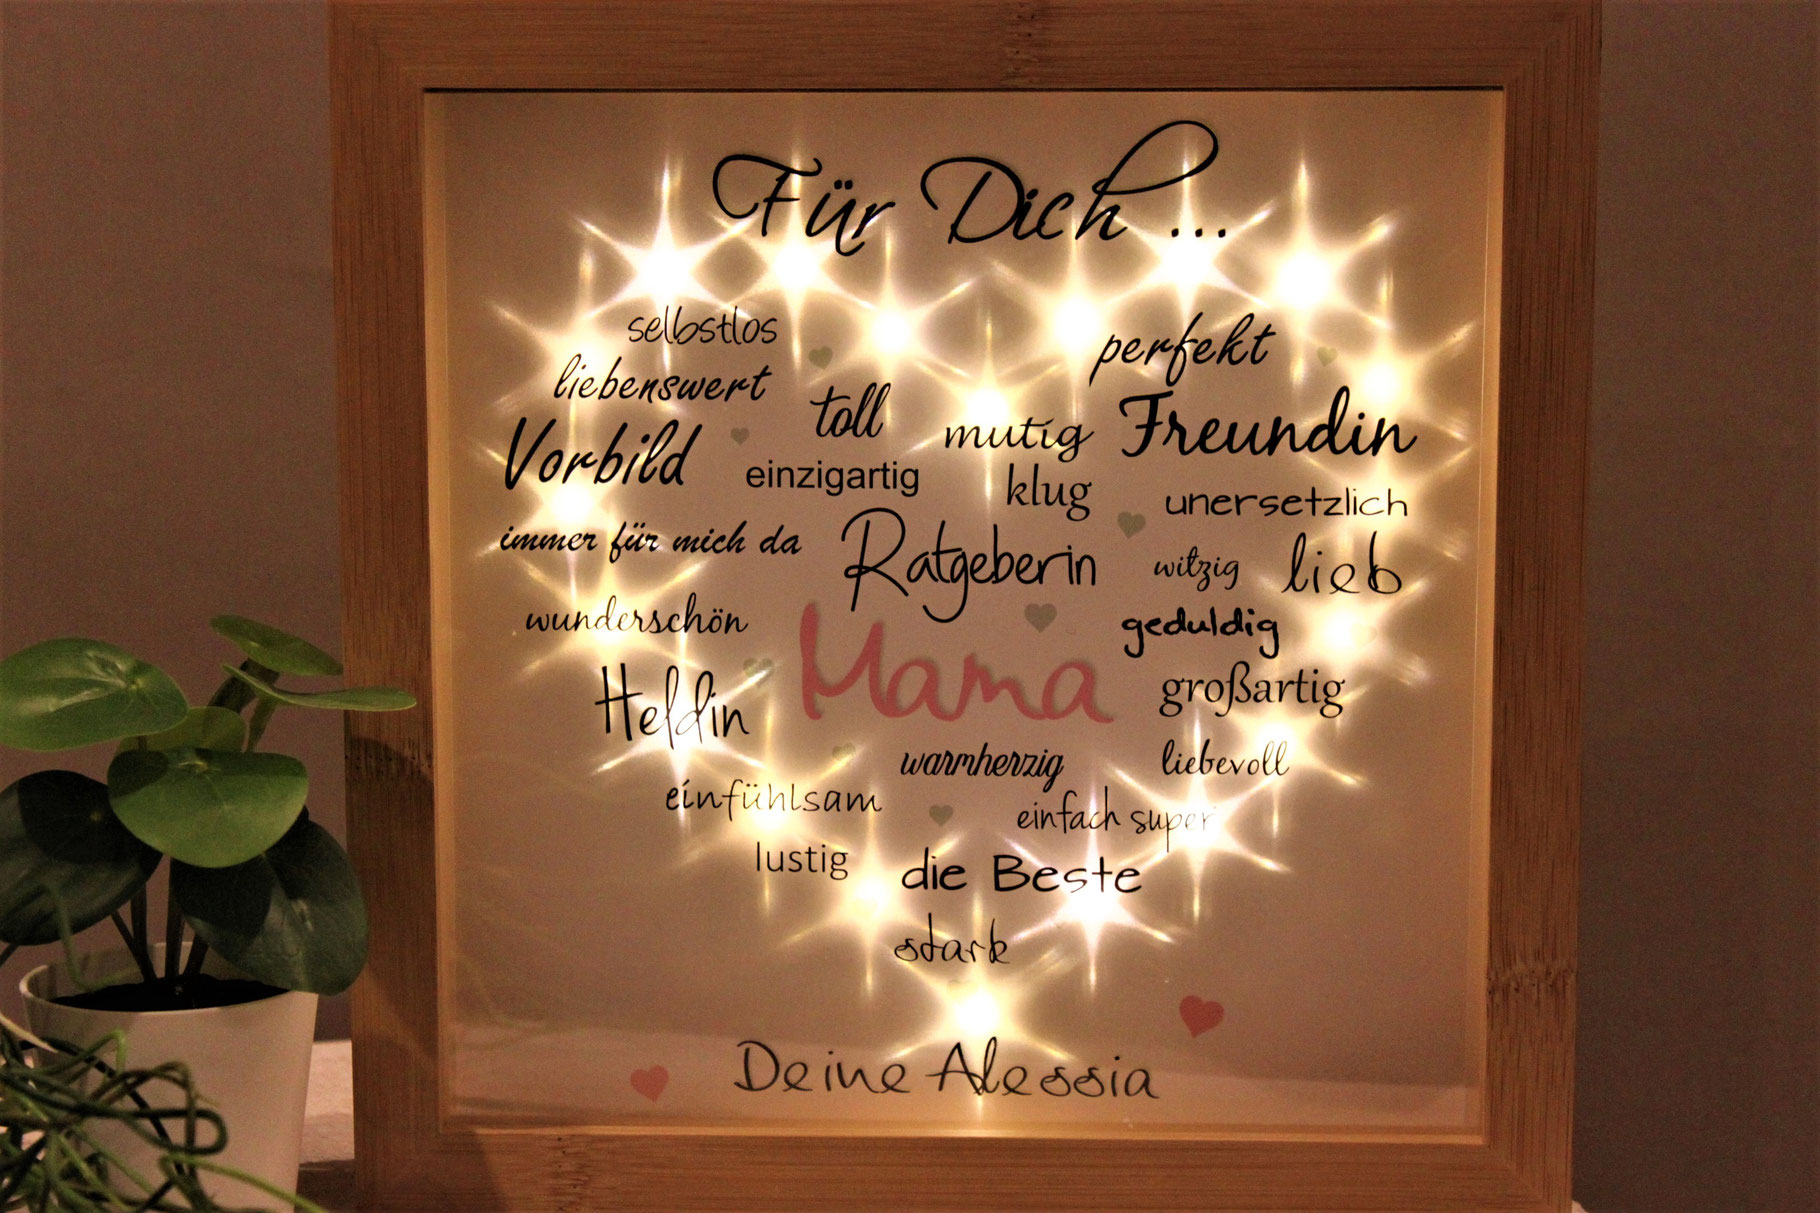 Für Dich ...
selbstlos
perfekt
liebenswert
toll
mutig
Freundin
Vorbild
einzigartig
klug
unersetzlich
immer für mich da
Ratgeberin
witzig
lieb
wunderschön
Mama
geduldig
Heldin
großartig
warmherzig
liebevoll
einfühlsam
einfach super
lustig
die Beste
stark
Deine Alessia